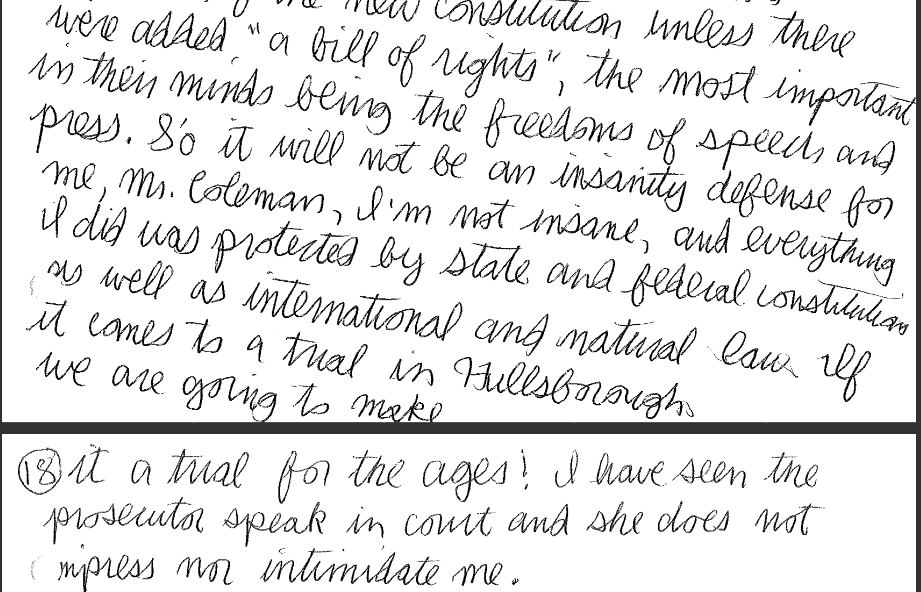 the new constitution unless there
were added "a bill of rights", the most important
in their minds being the freedoms of speech and
press. So it will not be an insanity defense for
me, Mr. Coleman, I'm not insane, and everything
I did was protected by state and federal constitutions
as well as international and natural law. If
it comes to a trial in Hillsborough
we are going to make
18 it a trial for the ages! I have seen the
prosecutor speak in court and she does not
impress nor intimidate me.